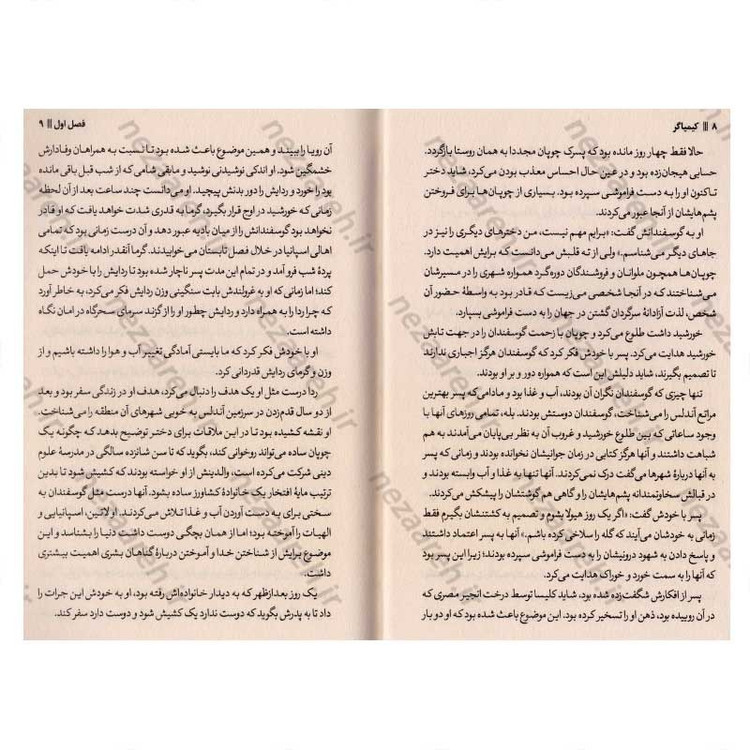 ۸ ||| کیمیاگر
حالا فقط چهار روز مانده بود که پسرک چوپان مجددا به همان روستا بازگردد.
حسابی هیجان‌زده بود و در عین حال احساس معذب بودن می‌کرد، شاید دختر
تاکنون او را به دست فراموشی سپرده بود. بسیاری از چوپان‌ها برای فروختن
پشم‌هایشان از آنجا عبور می‌کردند.
او به گوسفندانش گفت: «برایم مهم نیست، من دخترهای دیگری را نیز در
جاهای دیگر می‌شناسم.» ولی از ته قلبش می‌دانست که برایش اهمیت دارد.
چوپان‌ها همچون ملوانان و فروشندگان دوره‌گرد همواره شهری را در مسیرشان
می‌شناختند که در آنجا شخصی می‌زیست که قادر بود به واسطهٔ حضور آن
شخص، لذت آزادانهٔ سرگردان گشتن در جهان را به دست فراموشی بسپارد.
خورشید داشت طلوع می‌کرد و چوپان با زحمت گوسفندان را در جهت تابش
خورشید هدایت می‌کرد. پسر با خودش فکر کرد که گوسفندان هرگز اجباری ندارند
تا تصمیم بگیرند، شاید دلیلش این است که همواره دور و بر او بودند.
تنها چیزی که گوسفندان نگران آن بودند، آب و غذا بود و مادامی‌که پسر بهترین
مراتع آندلس را می‌شناخت، گوسفندان دوستش بودند. بله، تمامی روزهای آنها با
وجود ساعاتی که بین طلوع خورشید و غروب آن به نظر بی‌پایان می‌آمدند به هم
شباهت داشتند و آنها هرگز کتابی در دوران جوانیشان نخوانده بودند و زمانی که پسر
به آنها دربارهٔ شهرها می‌گفت درک نمی‌کردند. آنها تنها به غذا و آب وابسته بودند و
در قبالش سخاوتمندانه پشم‌هایشان را و گاهی هم گوشتشان را پیشکش می‌کردند.
پسر با خودش گفت: «اگر یک روز هیولا بشوم و تصمیم به کشتنشان بگیرم فقط
زمانی به خودشان می‌آیند که گله را سلاخی کرده باشم.» آنها به پسر اعتماد داشتند
و پاسخ دادن به شهود درونیشان را به دست فراموشی سپرده بودند؛ زیرا این پسر بود
که آنها را به سمت خورد و خوراک هدایت می‌کرد.
پسر از افکارش شگفت‌زده شده بود، شاید کلیسا توسط درخت انجیر مصری که
در آن روییده بود، ذهن او را تسخیر کرده بود. این موضوع باعث شده بود که او دو بار
فصل اول ||| ۹
آن رویا را ببیند و همین موضوع باعث شده بود تا نسبت به همراهان وفادارش
خشمگین شود. او اندکی نوشیدنی نوشید و مابقی شامی که از شب قبل باقی مانده
بود را خورد و ردایش را دور بدنش پیچید. او می‌دانست چند ساعت بعد از آن لحظه
زمانی که خورشید در اوج قرار بگیرد، گرما به قدری شدت خواهد یافت که او قادر
نخواهد بود گوسفندانش را از میان بادیه عبور دهد و آن درست زمانی بود که تمامی
اهالی اسپانیا در خلال فصل تابستان می‌خوابیدند. گرما آنقدر ادامه یافت تا اینکه
پردهٔ شب فرو آمد و در تمام این مدت پسر ناچار شده بود تا ردایش را با خودش حمل
کند؛ اما زمانی که او به غرولندش بابت سنگینی وزن ردایش فکر می‌کرد، به خاطر آورد
که چرا ردا را به همراه دارد و ردایش چطور او را از گزند سرمای سحرگاه در امان نگاه
داشته است.
او با خودش فکر کرد که ما بایستی آمادگی تغییر آب و هوا را داشته باشیم و از
وزن و گرمای ردایش قدردانی کرد.
ردا درست مثل او یک هدف را دنبال می‌کرد، هدف او در زندگی سفر بود و بعد
از دو سال قدم‌زدن در سرزمین آندلس به خوبی شهرهای آن منطقه را می‌شناخت.
او نقشه کشیده بود تا در این ملاقات برای دختر توضیح بدهد که چگونه یک
چوپان ساده می‌تواند روخوانی کند، بگوید که تا سن شانزده سالگی در مدرسهٔ علوم
دینی شرکت می‌کرده است، والدینش از او خواسته بودند که کشیش شود تا بدین
ترتیب مایهٔ افتخار یک خانوادهٔ کشاورز ساده بشود. آنها درست مثل گوسفندان به
سختی برای به دست آوردن آب و غذا تلاش می‌کردند. او لاتین، اسپانیایی و
الهیات را آموخته بود؛ اما از همان بچگی دوست داشت دنیا را بشناسد و این
موضوع برایش از شناختن خدا و آموختن دربارهٔ گناهان بشری اهمیت بیشتری
داشت.
یک روز بعدازظهر که به دیدار خانواده‌اش رفته بود، او به خودش این جرات را
داد تا به پدرش بگوید که دوست ندارد یک کشیش شود و دوست دارد سفر کند.
nezaareh.ir